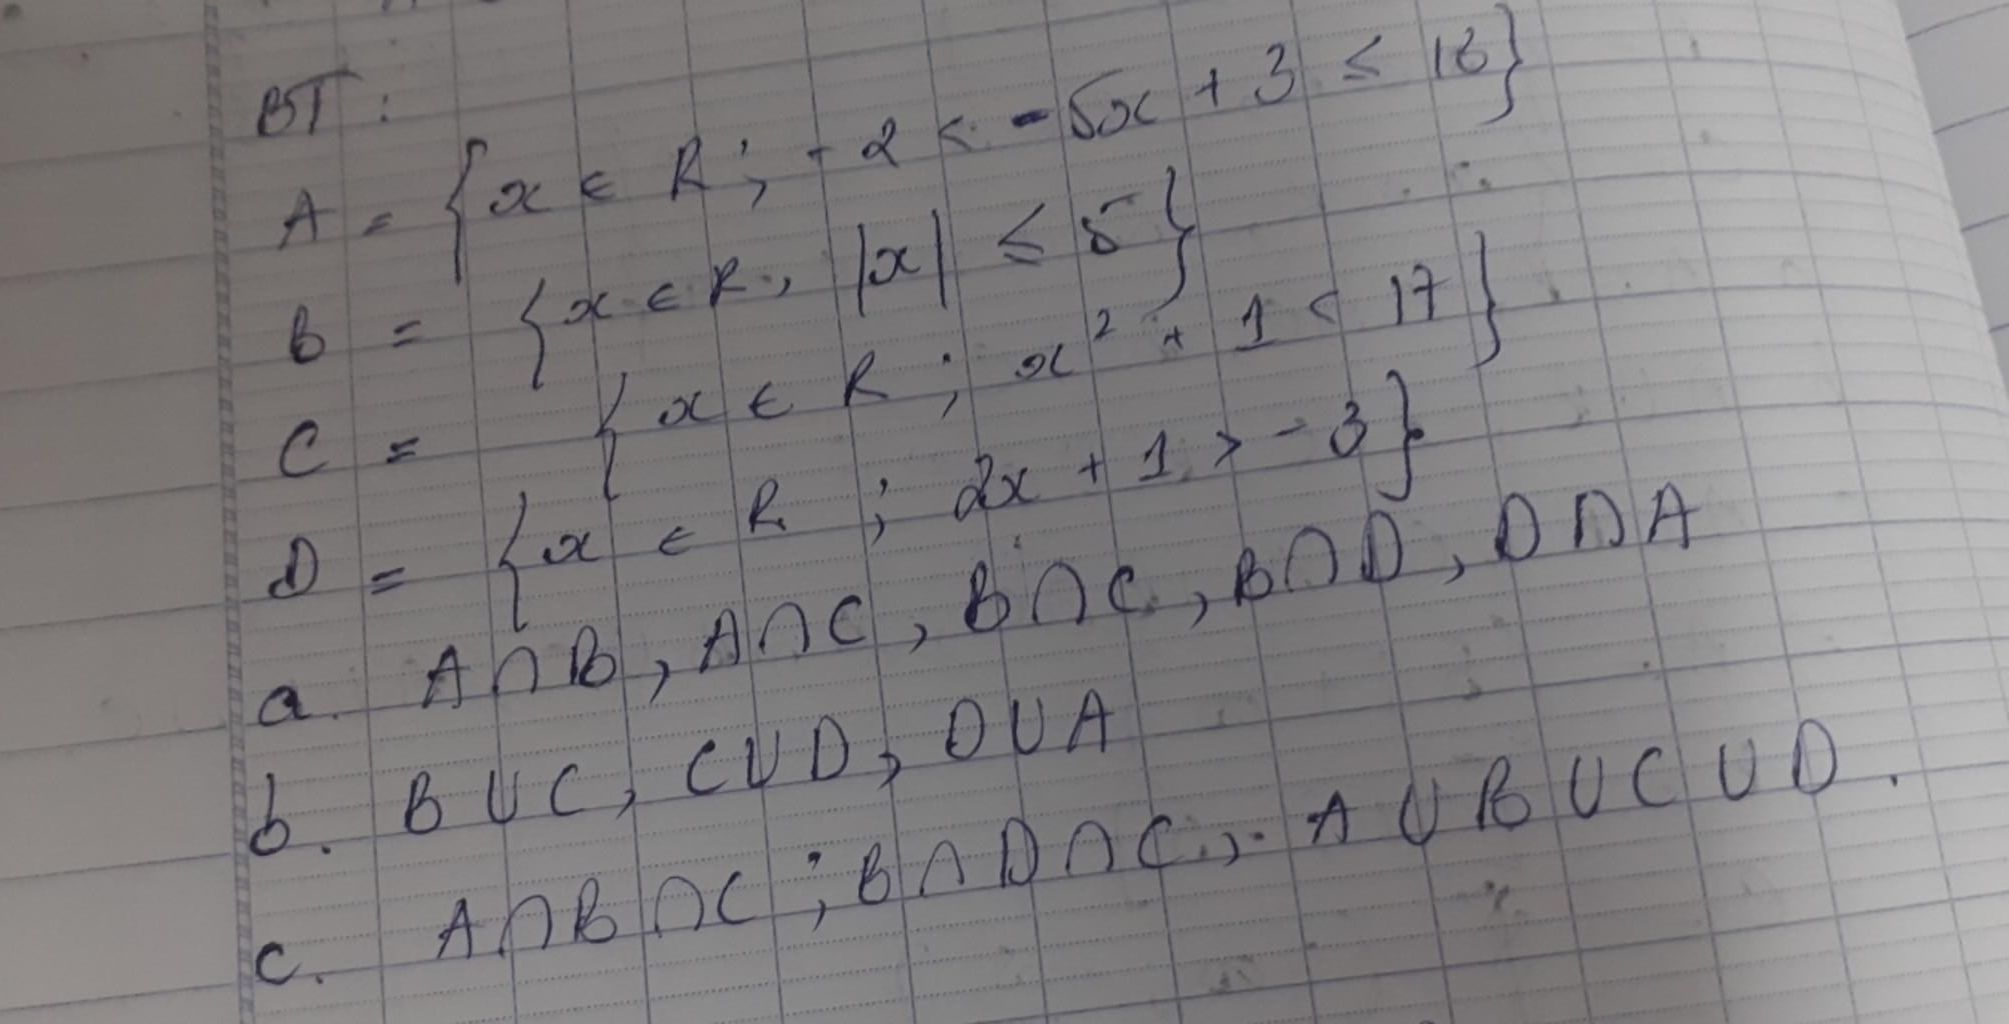 BT :
A = { x ∈ R ; - 2 < - 5x + 3 ≤ 18 }
B = { x ∈ R , |x| ≤ 5 }
C = { x ∈ R ; x² + 1 < 17 }
D = { x ∈ R ; 2x + 1 > - 3 }
a. A ∩ B , A ∩ C , B ∩ C , B ∩ D , D ∩ A
b. B U C , C U D , D U A
c. A ∩ B ∩ C ; B ∩ D ∩ C , A U B U C U D .